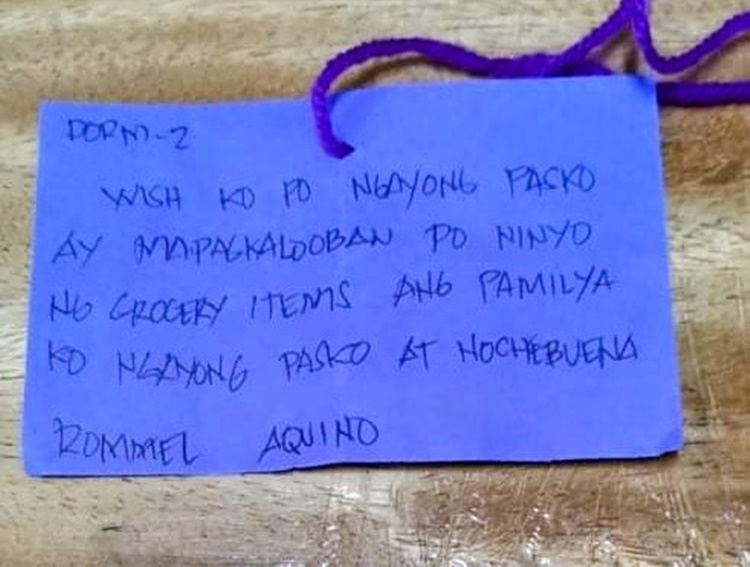 DORM-2
WISH KO PO NGAYONG PASKO
AY MAPAGKALOOBAN PO NINYO
NG GROCERY ITEMS ANG PAMILYA
KO NGAYONG PASKO AT NOCHEBUENA
AQUINO